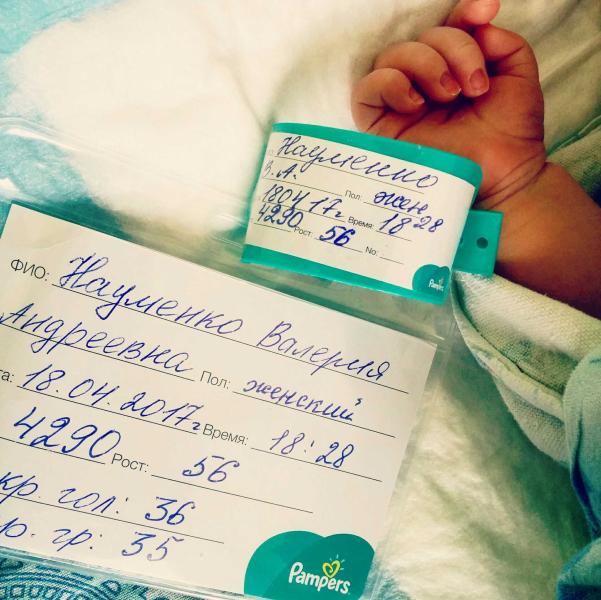 Науменко
В.А. Пол: жен
180417г Время: 18 28
4290 Рост: 56 No:
Pampers
ФИО: Науменко Валерия
Андреевна Пол: женский
та: 18.04.2017г Время: 18:28
4290 Рост: 56
кр. гол: 36
гр: 35
Pampers